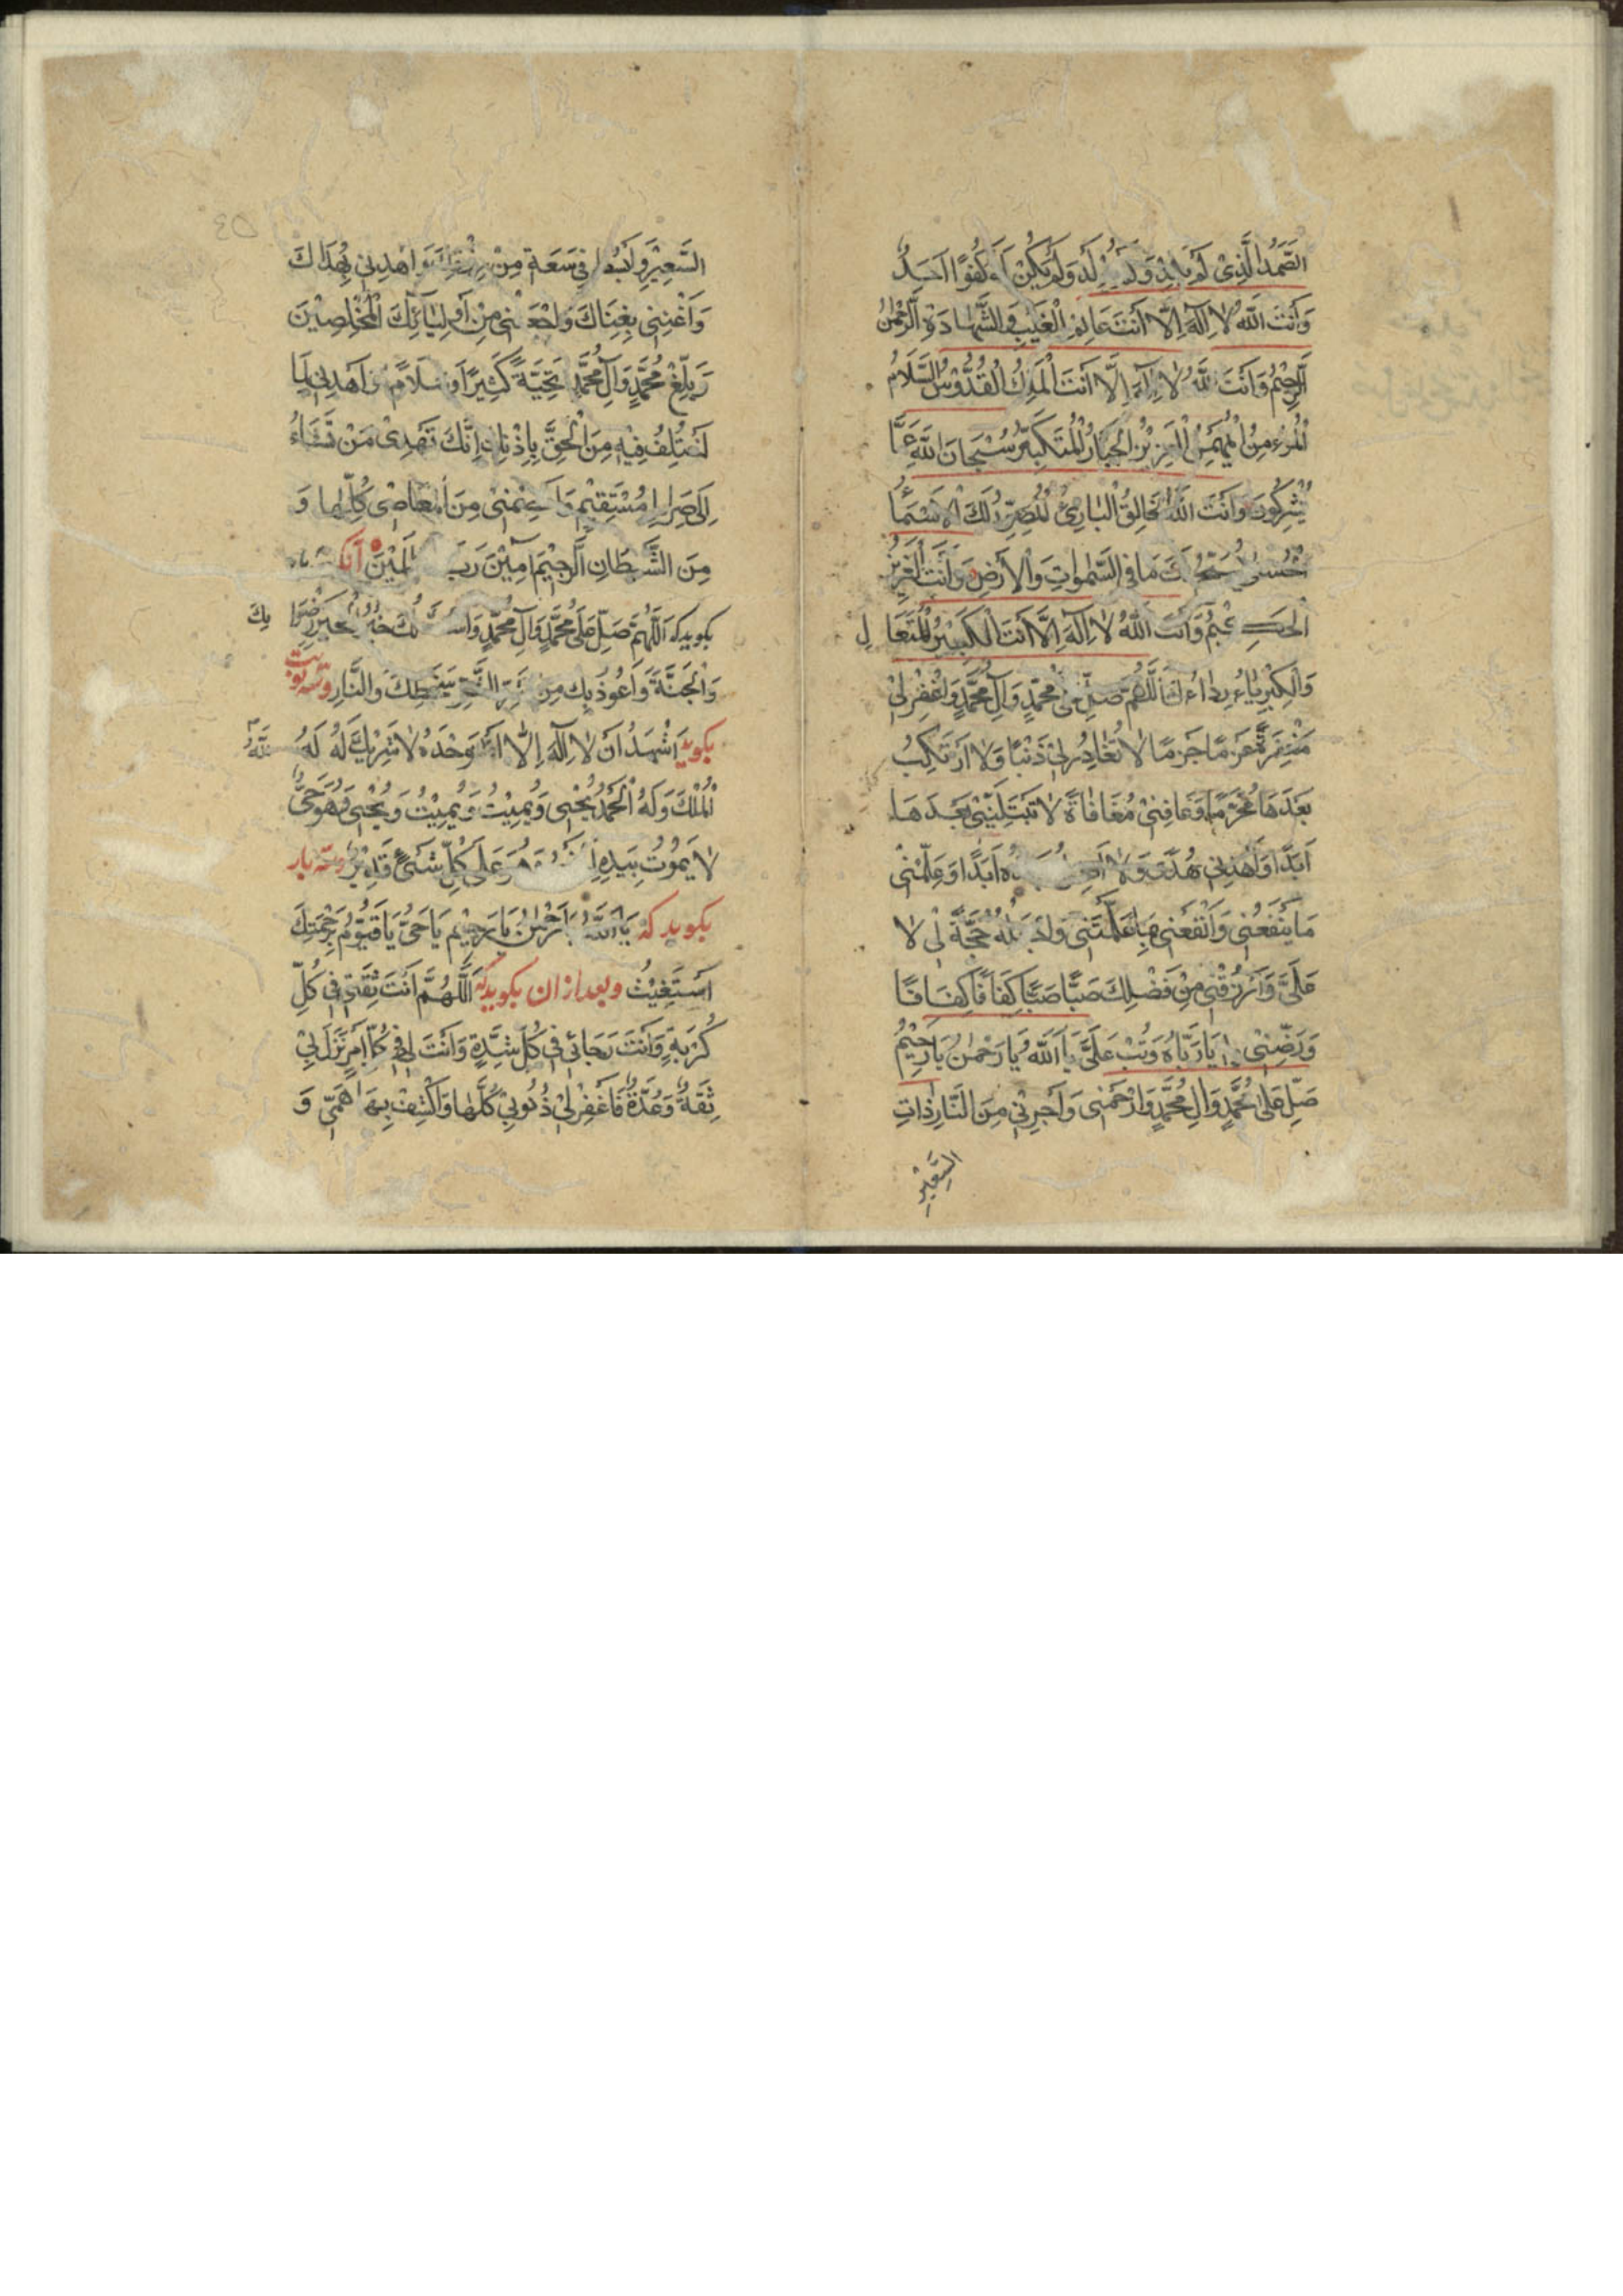 الصَّمَدُ الَّذِىْ لَمْ يَلِدْ وَلَمْ يُوْلَدْ وَلَمْ يَكُنْ لَهُ كُفُوًا اَحَدٌ
وَاَنْتَ اللّٰهُ لَا اِلٰهَ اِلَّا اَنْتَ عَالِمُ الْغَيْبِ وَالشَّهَادَةِ الرَّحْمٰنُ
الرَّحِيْمُ وَاَنْتَ اللّٰهُ لَا اِلٰهَ اِلَّا اَنْتَ الْمَلِكُ الْقُدُّوْسُ السَّلَامُ
الْمُؤْمِنُ الْمُهَيْمِنُ الْعَزِيْزُ الْجَبَّارُ الْمُتَكَبِّرُ سُبْحَانَ اللّٰهِ عَمَّا
يُشْرِكُوْنَ وَاَنْتَ اللّٰهُ الْخَالِقُ الْبَارِئُ الْمُصَوِّرُ لَكَ الْاَسْمَاءُ
الْحُسْنٰى يُسَبِّحُ لَكَ مَا فِى السَّمٰوَاتِ وَالْاَرْضِ وَاَنْتَ الْعَزِيْزُ
الْحَكِيْمُ وَاَنْتَ اللّٰهُ لَا اِلٰهَ اِلَّا اَنْتَ الْكَبِيْرُ الْمُتَعَالِ
وَالْكِبْرِيَاءُ رِدَاءُكَ اَللّٰهُمَّ صَلِّ عَلٰى مُحَمَّدٍ وَاٰلِ مُحَمَّدٍ وَاغْفِرْ لِىْ
مَغْفِرَةً عَزْمًا جَزْمًا لَا تُغَادِرُ لِىْ ذَنْبًا وَلَا اَرْتَكِبُ
بَعْدَهَا مُحَرَّمًا وَعَافِنِىْ مُعَافَاةً لَا تَبْتَلِيَنِّىْ بَعْدَهَا
اَبَدًا وَاهْدِنِىْ هُدًى وَلَا اَضِلُّ بَعْدَهُ اَبَدًا وَعَلِّمْنِىْ
مَا يَنْفَعُنِىْ وَانْفَعْنِىْ بِمَا عَلَّمْتَنِىْ وَاجْعَلْهُ حُجَّةً لِىْ لَا
عَلَىَّ وَارْزُقْنِىْ مِنْ فَضْلِكَ صَبًّا صَبًّا كَفَافًا كَفَافًا
وَرَضِّنِىْ بِهٖ يَا رَبَّاهُ وَتُبْ عَلَىَّ يَا اَللّٰهُ يَا رَحْمٰنُ يَا رَحِيْمُ
صَلِّ عَلٰى مُحَمَّدٍ وَاٰلِ مُحَمَّدٍ وَارْحَمْنِىْ وَاَجِرْنِىْ مِنَ النَّارِ ذَاتِ
السَّعِيْرِ
السَّعِيْرِ وَابْسُطْ لِىْ فِىْ سَعَةٍ مِنْ رِزْقِكَ وَاهْدِنِىْ بِهُدَاكَ
وَاَغْنِنِىْ بِغِنَاكَ وَاجْعَلْنِىْ مِنْ اَوْلِيَائِكَ الْمُخْلِصِيْنَ
وَبَلِّغْ مُحَمَّدٍ وَاٰلَ مُحَمَّدٍ تَحِيَّةً كَثِيْرًا وَسَلَامًا وَاهْدِنِىْ لِمَا
اخْتُلِفَ فِيْهِ مِنَ الْحَقِّ بِاِذْنِكَ اِنَّكَ تَهْدِىْ مَنْ تَشَاءُ
اِلٰى صِرَاطٍ مُسْتَقِيْمٍ وَاعْصِمْنِىْ مِنَ الْمَعَاصِىْ كُلِّهَا وَ
مِنَ الشَّيْطَانِ الرَّجِيْمِ اٰمِيْنَ رَبَّ الْعَالَمِيْنَ
بكويد كه اَللّٰهُمَّ صَلِّ عَلٰى مُحَمَّدٍ وَاٰلِ مُحَمَّدٍ وَاَسْئَلُكَ خَيْرَ الْخَيْرِ رِضْوَانِكَ
وَالْجَنَّةَ وَاَعُوْذُ بِكَ مِنْ شَرِّ الشَّرِّ سَخَطِكَ وَالنَّارِ وسه نوبت
بكويد اَشْهَدُ اَنْ لَا اِلٰهَ اِلَّا اللّٰهُ وَحْدَهُ لَا شَرِيْكَ لَهُ لَهُ
الْمُلْكُ وَلَهُ الْحَمْدُ يُحْيِىْ وَيُمِيْتُ وَيُمِيْتُ وَيُحْيِىْ وَهُوَ حَىٌّ
لَا يَمُوْتُ بِيَدِهِ الْخَيْرُ وَهُوَ عَلٰى كُلِّ شَىْءٍ قَدِيْرٌ وسه بار
بكويد كه يَا اَللّٰهُ يَا رَحْمٰنُ يَا رَحِيْمُ يَا حَىُّ يَا قَيُّوْمُ بِرَحْمَتِكَ
اَسْتَغِيْثُ وبعد از ان بكويد كه اَللّٰهُمَّ اَنْتَ ثِقَتِىْ فِىْ كُلِّ
كُرْبَةٍ وَاَنْتَ رَجَائِىْ فِىْ كُلِّ شِدَّةٍ وَاَنْتَ لِىْ فِىْ كُلِّ اَمْرٍ نَزَلَ بِىْ
ثِقَةٌ وَعُدَّةٌ فَاغْفِرْ لِىْ ذُنُوْبِىْ كُلَّهَا وَاكْشِفْ بِهَا هَمِّىْ وَ